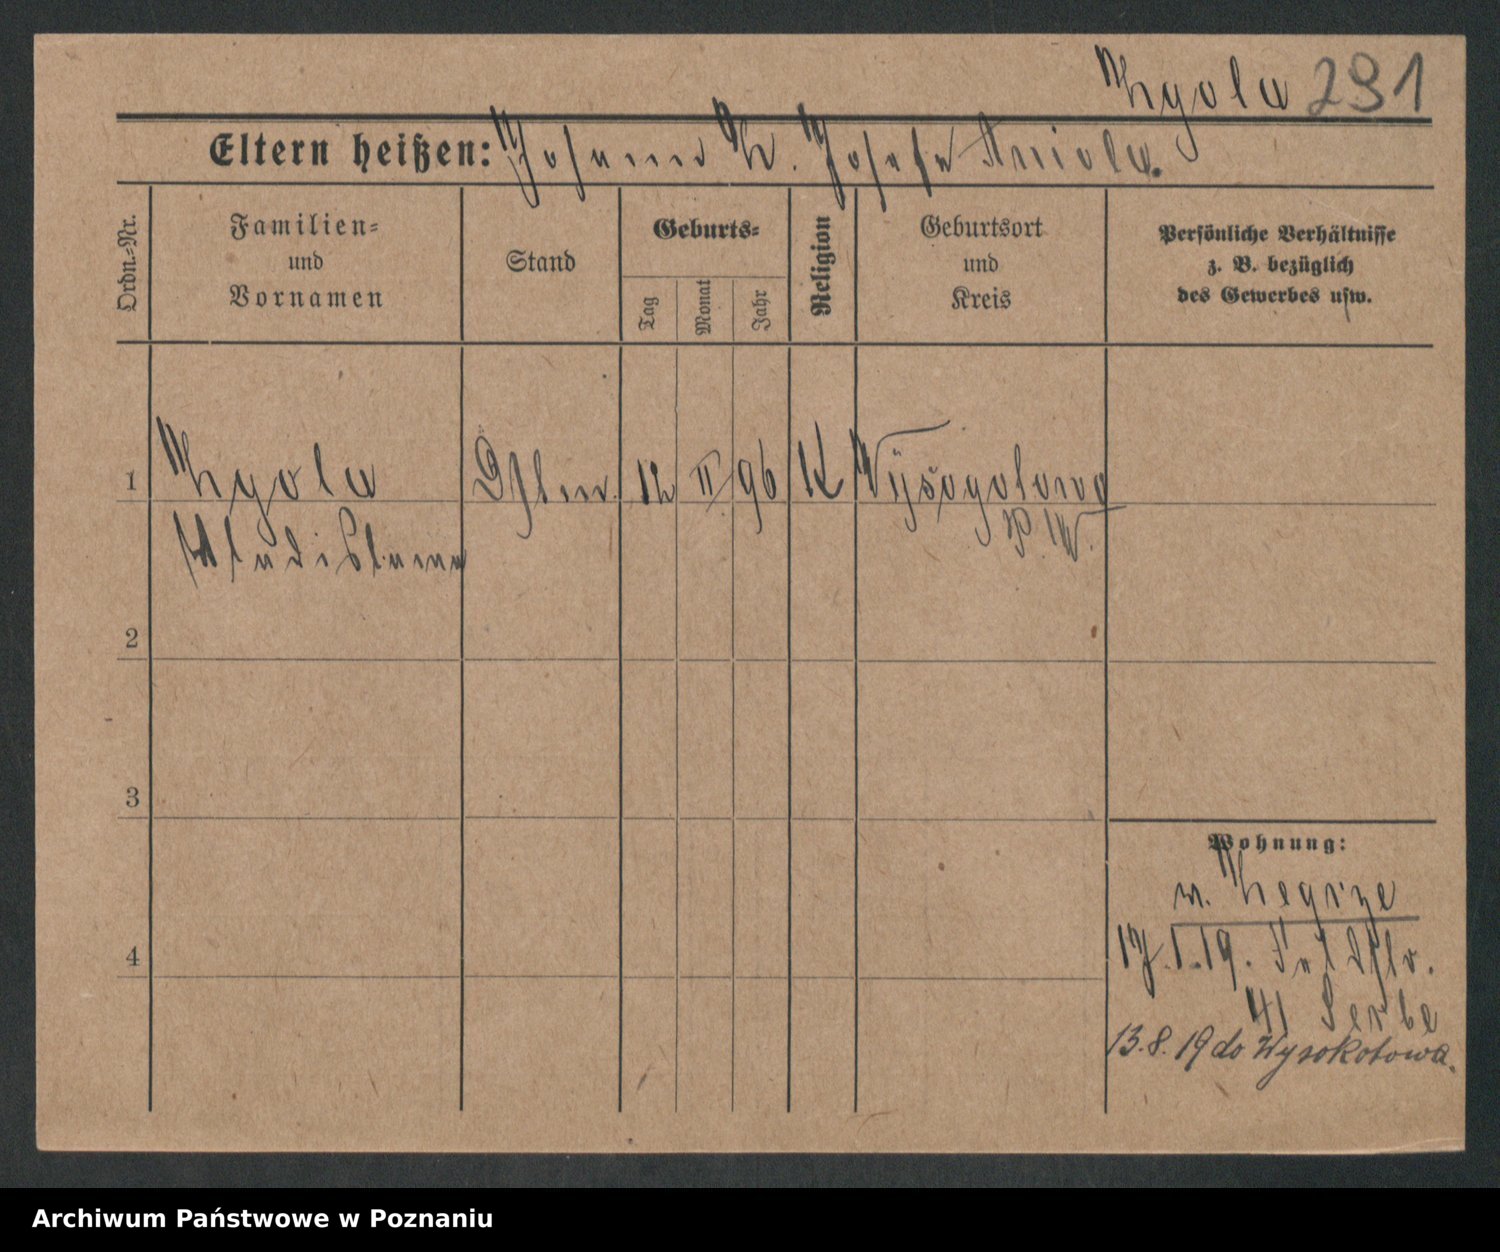 Zgola 291
Eltern heißen: Johann Z. Josefa Aniola.
Ordn.-Nr.
Familien-
und
Vornamen
Stand
Geburts-
Tag
Monat
Jahr
Religion
Geburtsort
und
Kreis
Persönliche Verhältnisse
z. B. bezüglich
des Gewerbes usw.
1
Zgola
12 II 96 K Wysogotowo
P. W.
Wladislawa
2
3
Wohnung:
v. Zegrze
17.1.19.
4
41
13.8.19 do Wysokotowa.
Archiwum Państwowe w Poznaniu